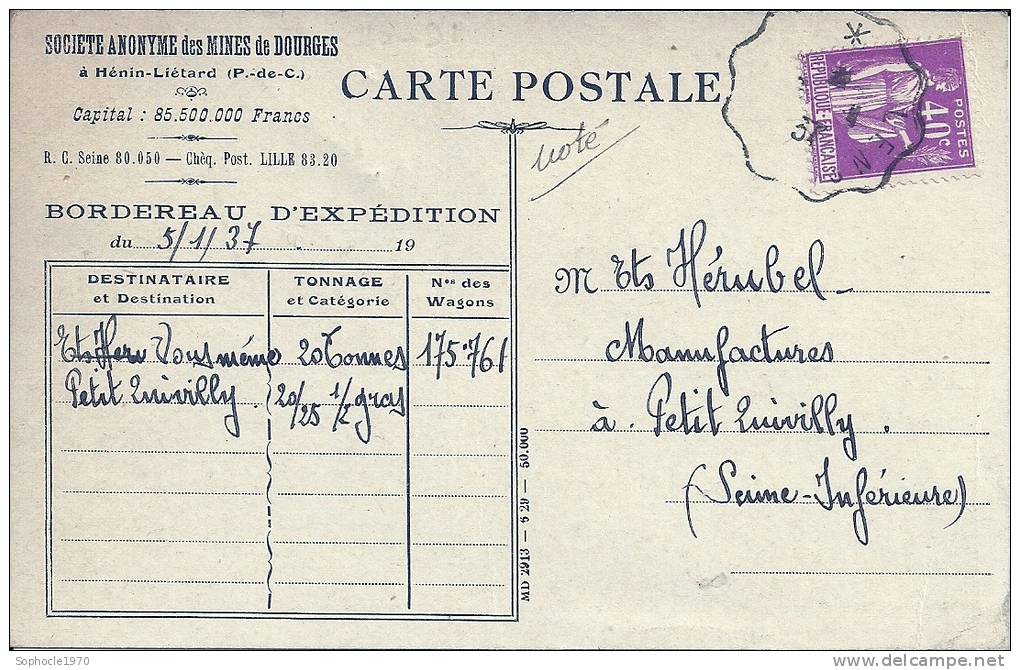 SOCIETE ANONYME des MINES de DOURGES
à Hénin-Liétard (P.-de-C.)
Capital : 85.500.000 Francs
R. C. Seine 80.050 — Chèq. Post. LILLE 83.20
BORDEREAU D'EXPÉDITION
du 5/1/37 19
DESTINATAIRE et Destination
TONNAGE et Catégorie
Nos des Wagons
Ets Heru Vous même 20 Tonnes 175.761
Petit Quivilly 20/25 1/2 gras
MD 2913 — 6 29 — 50.000
CARTE POSTALE
noté
POSTES
40c
REPUBLIQUE FRANÇAISE
M Ets Hérubel
Manufactures
à Petit Quivilly.
(Seine-Inférieure)
Sophocle1970
delcampe.net